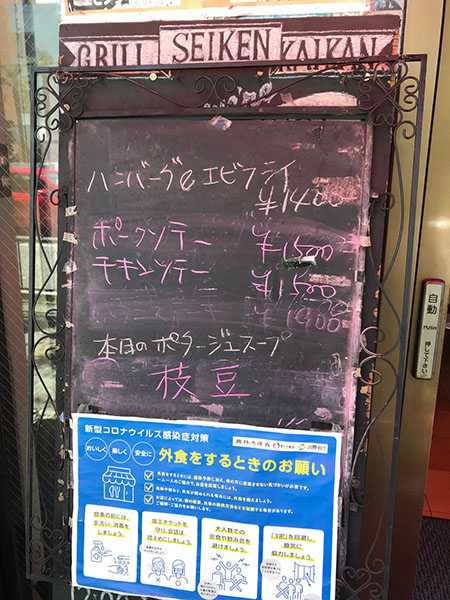 GRILL SEIKEN KAIKAN
ハンバーグ&エビフライ
¥1400
ポークソテー ¥1500
チキンソテー ¥1500
¥1900
本日のポタージュスープ
枝豆
自動
押して下さい
新型コロナウイルス感染症対策
おいしく 楽しく 安全に
外食をするときのお願い
食事の前には、
手洗い・消毒を
しましょう。
咳エチケットを
守り、会話は
控えめにしましょう。
大人数での
会食や飲み会を
避けましょう。
「3密」を回避し、
換気に
協力しましょう。